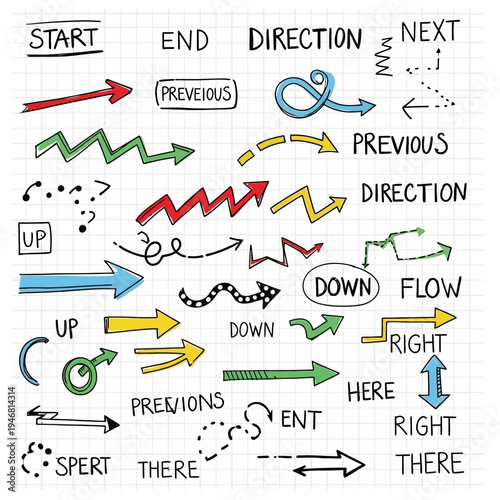 START
END
DIRECTION
NEXT
PREVEIOUS
PREVIOUS
DIRECTION
UP
DOWN
FLOW
UP
DOWN
RIGHT
HERE
PREVIONS
ENT
RIGHT
SPERT
THERE
THERE
Adobe Stock | #1946814314